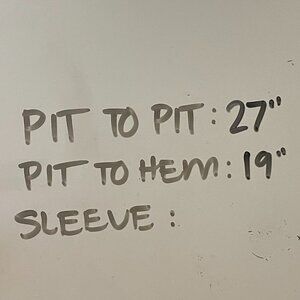 PIT TO PIT: 27"
PIT TO HEM: 19"
SLEEVE: